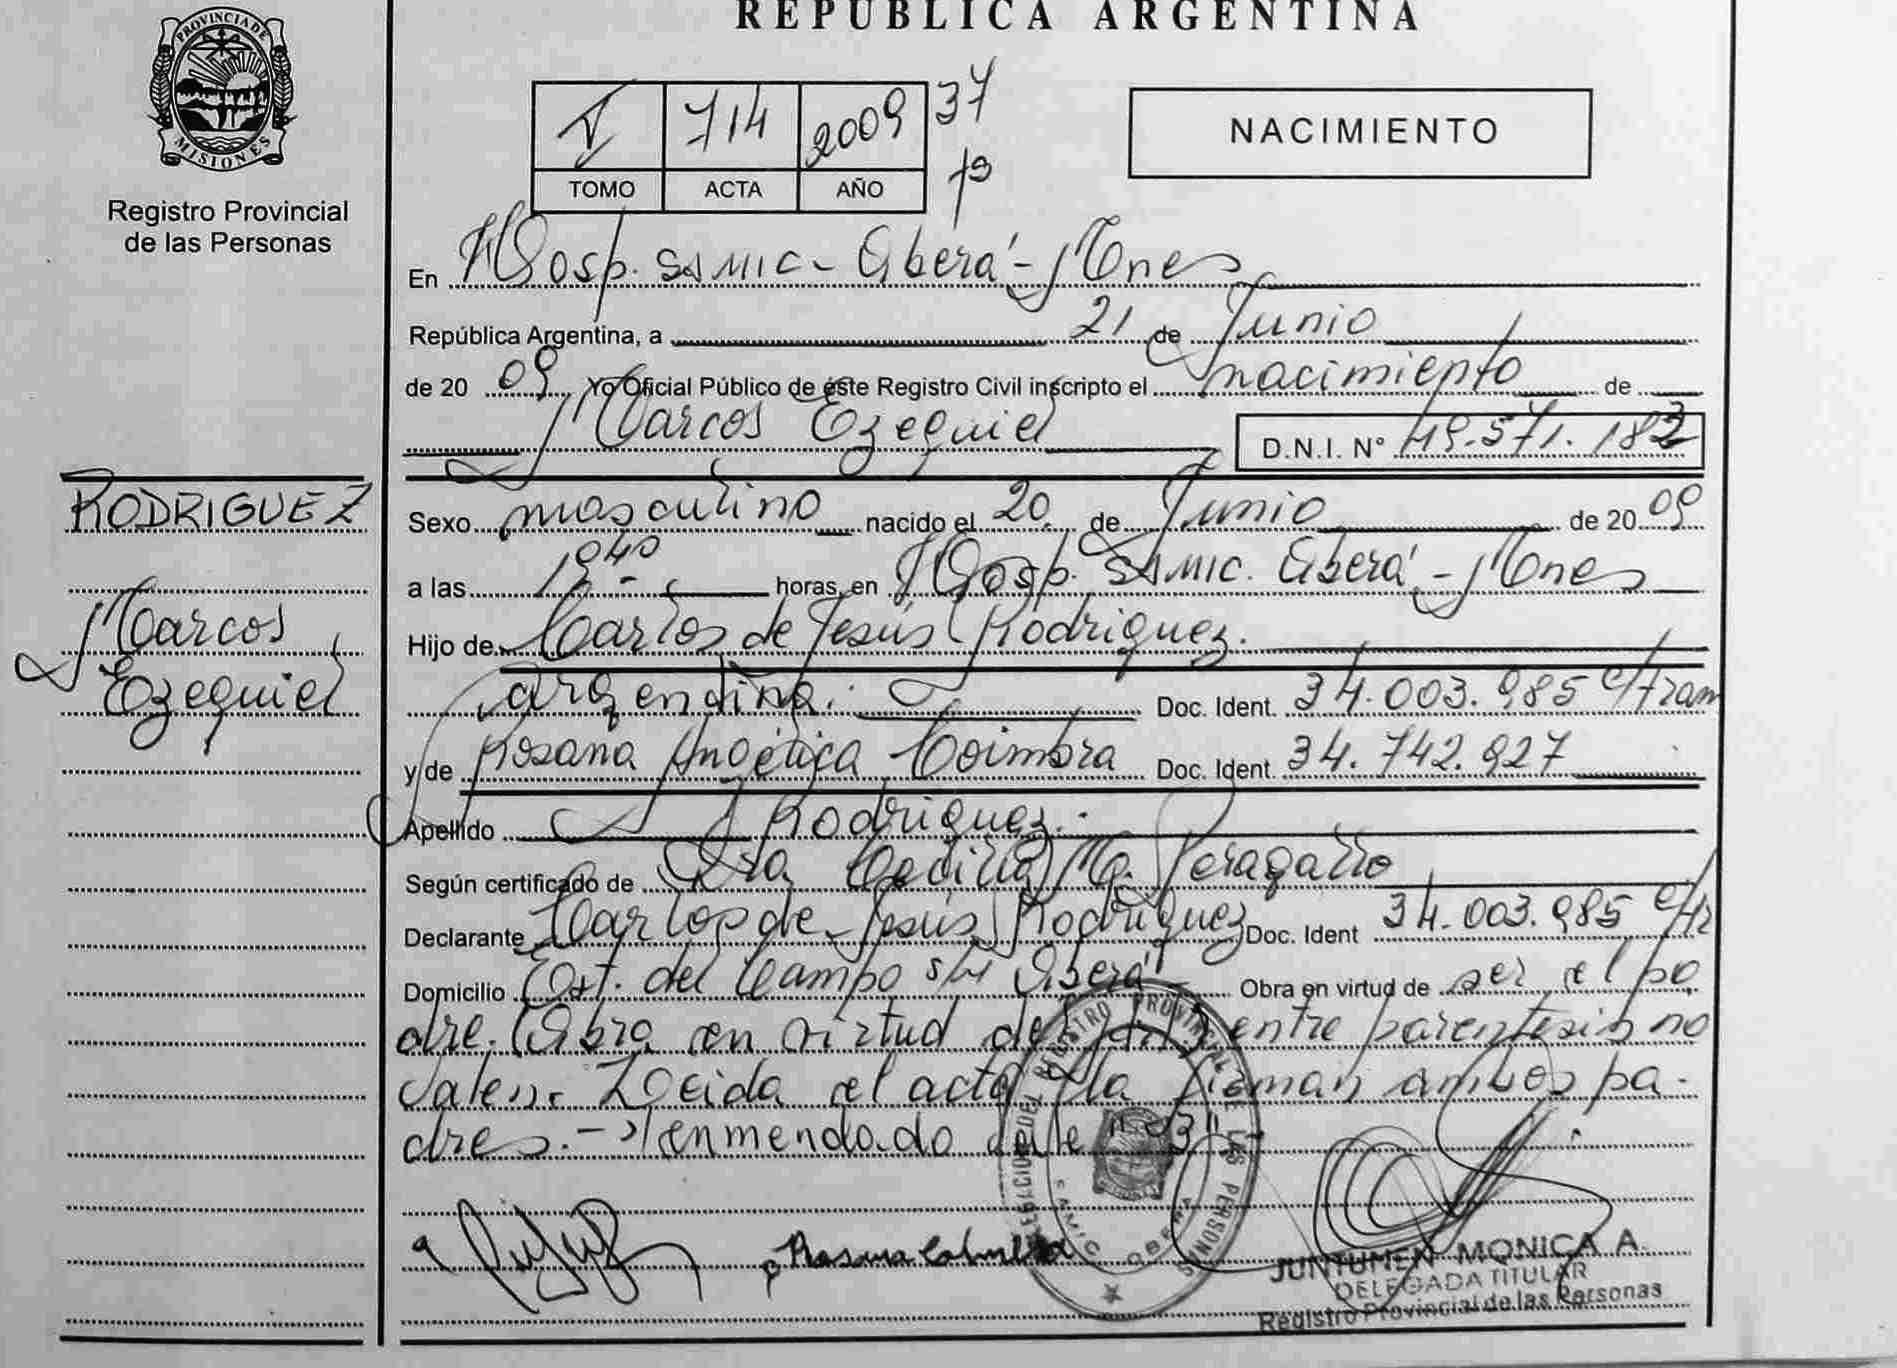 REPÚBLICA ARGENTINA
PROVINCIA DE MISIONES
Registro Provincial
de las Personas
I 714 2009 37
TOMO ACTA AÑO
NACIMIENTO
En Hosp. SAMIC - Oberá - Mnes
República Argentina, a 21 de Junio
de 20 09 Yo Oficial Público de éste Registro Civil inscripto el nacimiento de
Marcos Ezequiel D.N.I. Nº 49.571.183
RODRIGUEZ
Marcos
Ezequiel
Sexo masculino nacido el 20 de Junio de 20 09
a las 19 40 horas, en Hosp. SAMIC. Oberá - Mnes
Hijo de Carlos de Jesús Rodriguez.
argentina. Doc. Ident. 34.003.985 c/tram
y de Rosana Angélica Coimbra Doc. Ident. 34.742.927
Apellido Rodriguez.
Según certificado de Dra Cecilia M. Peragallo
Declarante Carlos de Jesús Rodriguez Doc. Ident 34.003.985 c/tr
Domicilio Ext. del Campo s/n Oberá Obra en virtud de ser el pa
dre. (Obra en virtud de) entre parentesis no
valen. Leida el acta la firman ambos pa-
dres. - enmendado vale "3"
Rosana Coimbra
DELEGACION DEL REGISTRO PROVINCIAL DE LAS PERSONAS
SAMIC OBERA
JUNTUMEN MONICA A.
DELEGADA TITULAR
Registro Provincial de las Personas